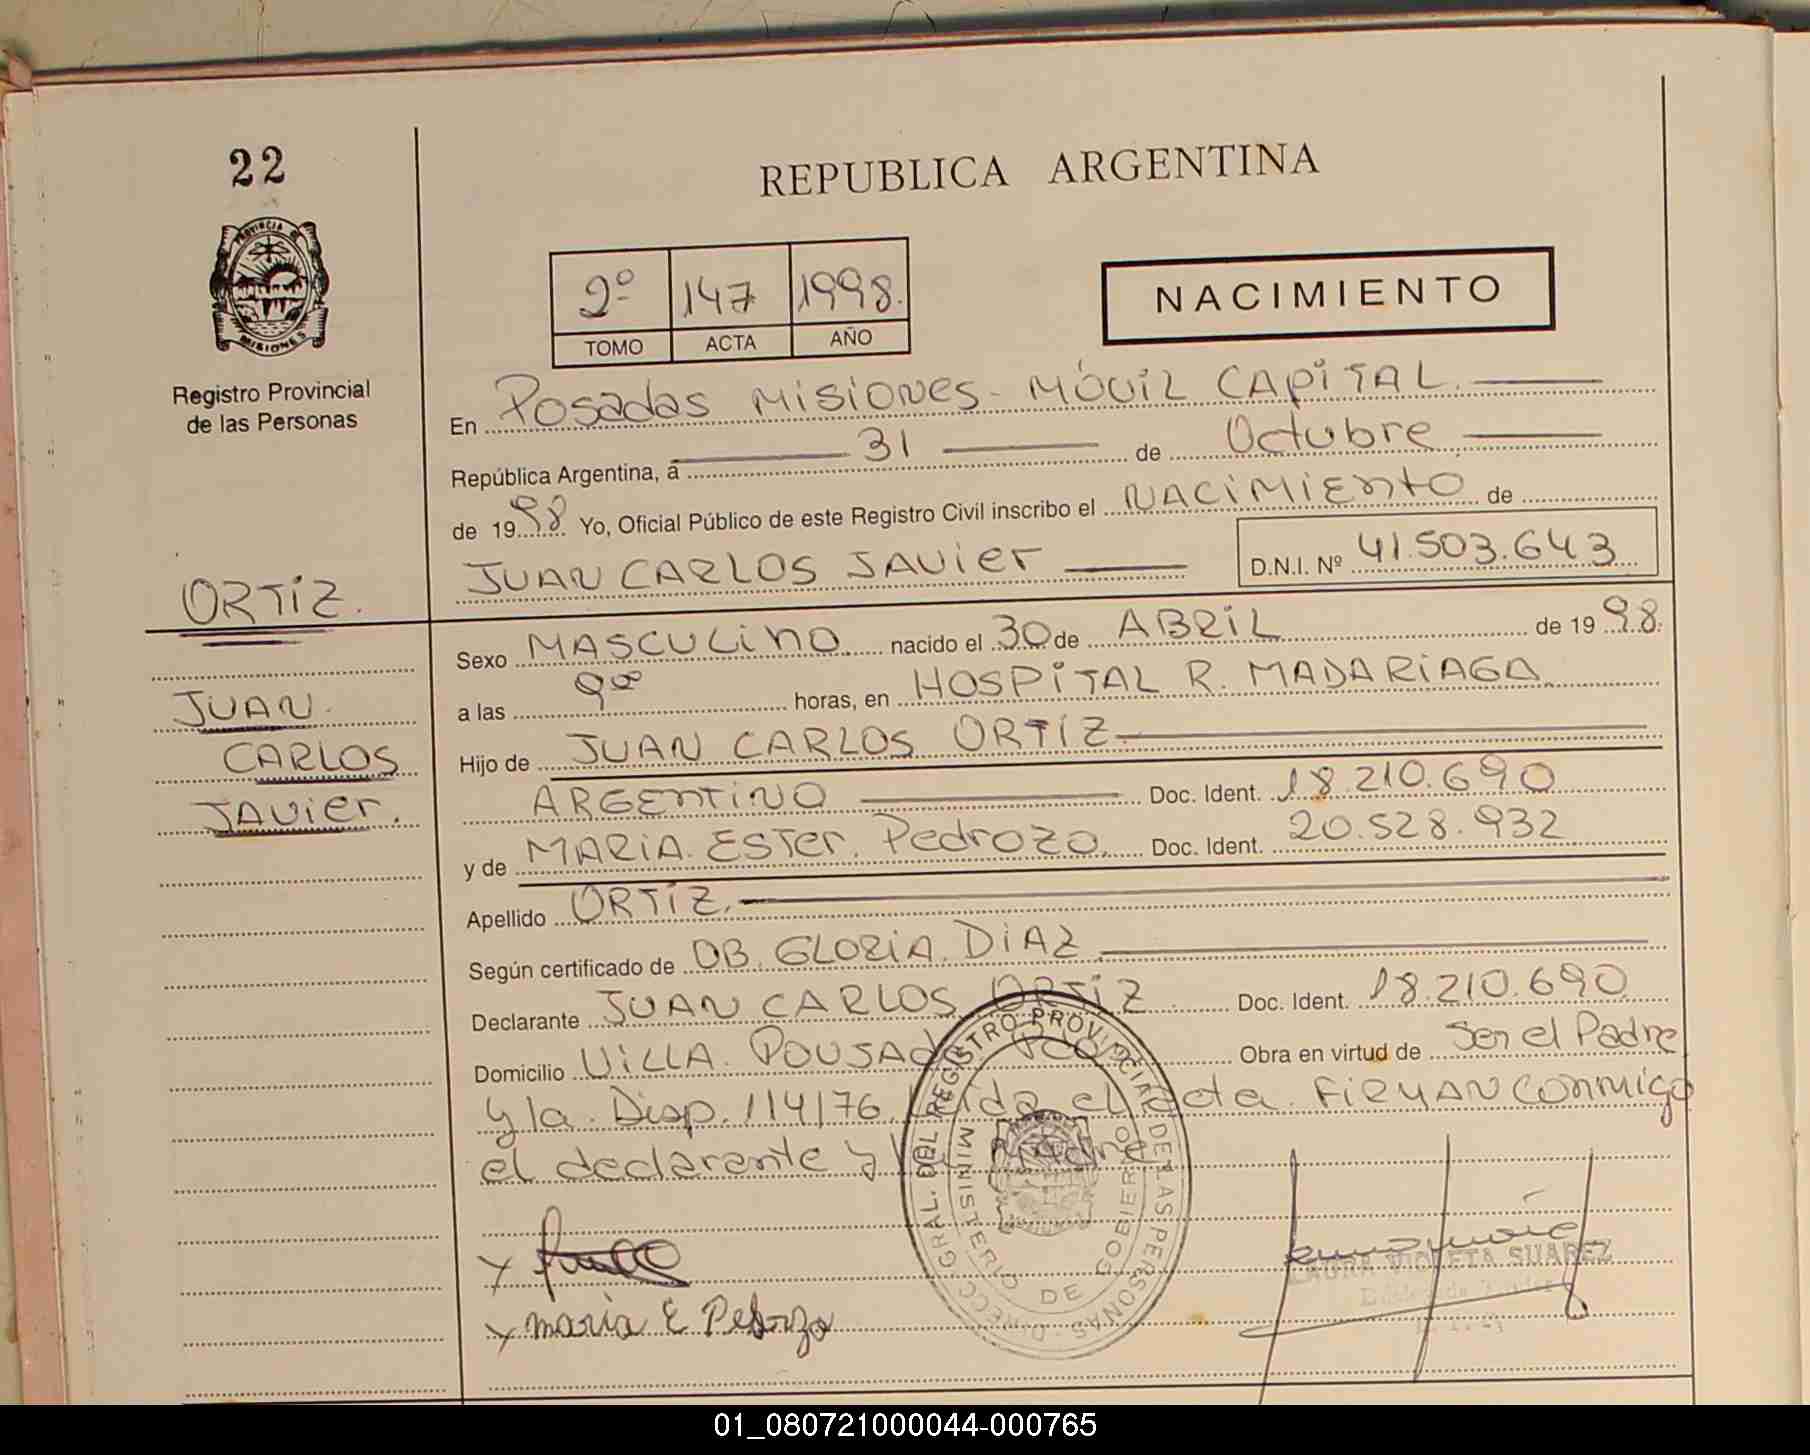 22
REPUBLICA ARGENTINA
PROVINCIA DE
MISIONES
Registro Provincial
de las Personas
2º 147 1998.
TOMO ACTA AÑO
NACIMIENTO
En Posadas Misiones - Móvil Capital.
República Argentina, a 31 de Octubre
de 1998 Yo, Oficial Público de este Registro Civil inscribo el NACIMIENTO de
JUAN CARLOS JAVIER D.N.I. Nº 41.503.643
ORTIZ.
JUAN
CARLOS
JAVIER.
Sexo MASCULINO nacido el 30 de ABRIL de 1998.
a las 9ºº horas, en HOSPITAL R. MADARIAGA
Hijo de JUAN CARLOS ORTIZ
ARGENTINO Doc. Ident. 18.210.690
y de MARIA. ESTER. PEDROZO. Doc. Ident. 20.528.932
Apellido ORTIZ.
Según certificado de OB. GLORIA. DIAZ
Declarante JUAN CARLOS ORTIZ Doc. Ident. 18.210.690
Domicilio VILLA. POUJADE Obra en virtud de Ser el Padre
y la. Disp. 114/76. Leida el acta. FIRMAN CONMIGO
el declarante y la Madre
DIRECC. GRAL. DEL REGISTRO PROVINCIAL DE LAS PERSONAS
MINISTERIO DE GOBIERNO
x maria E Pedrozo
LAURA VIOLETA SUAREZ
01_080721000044-000765